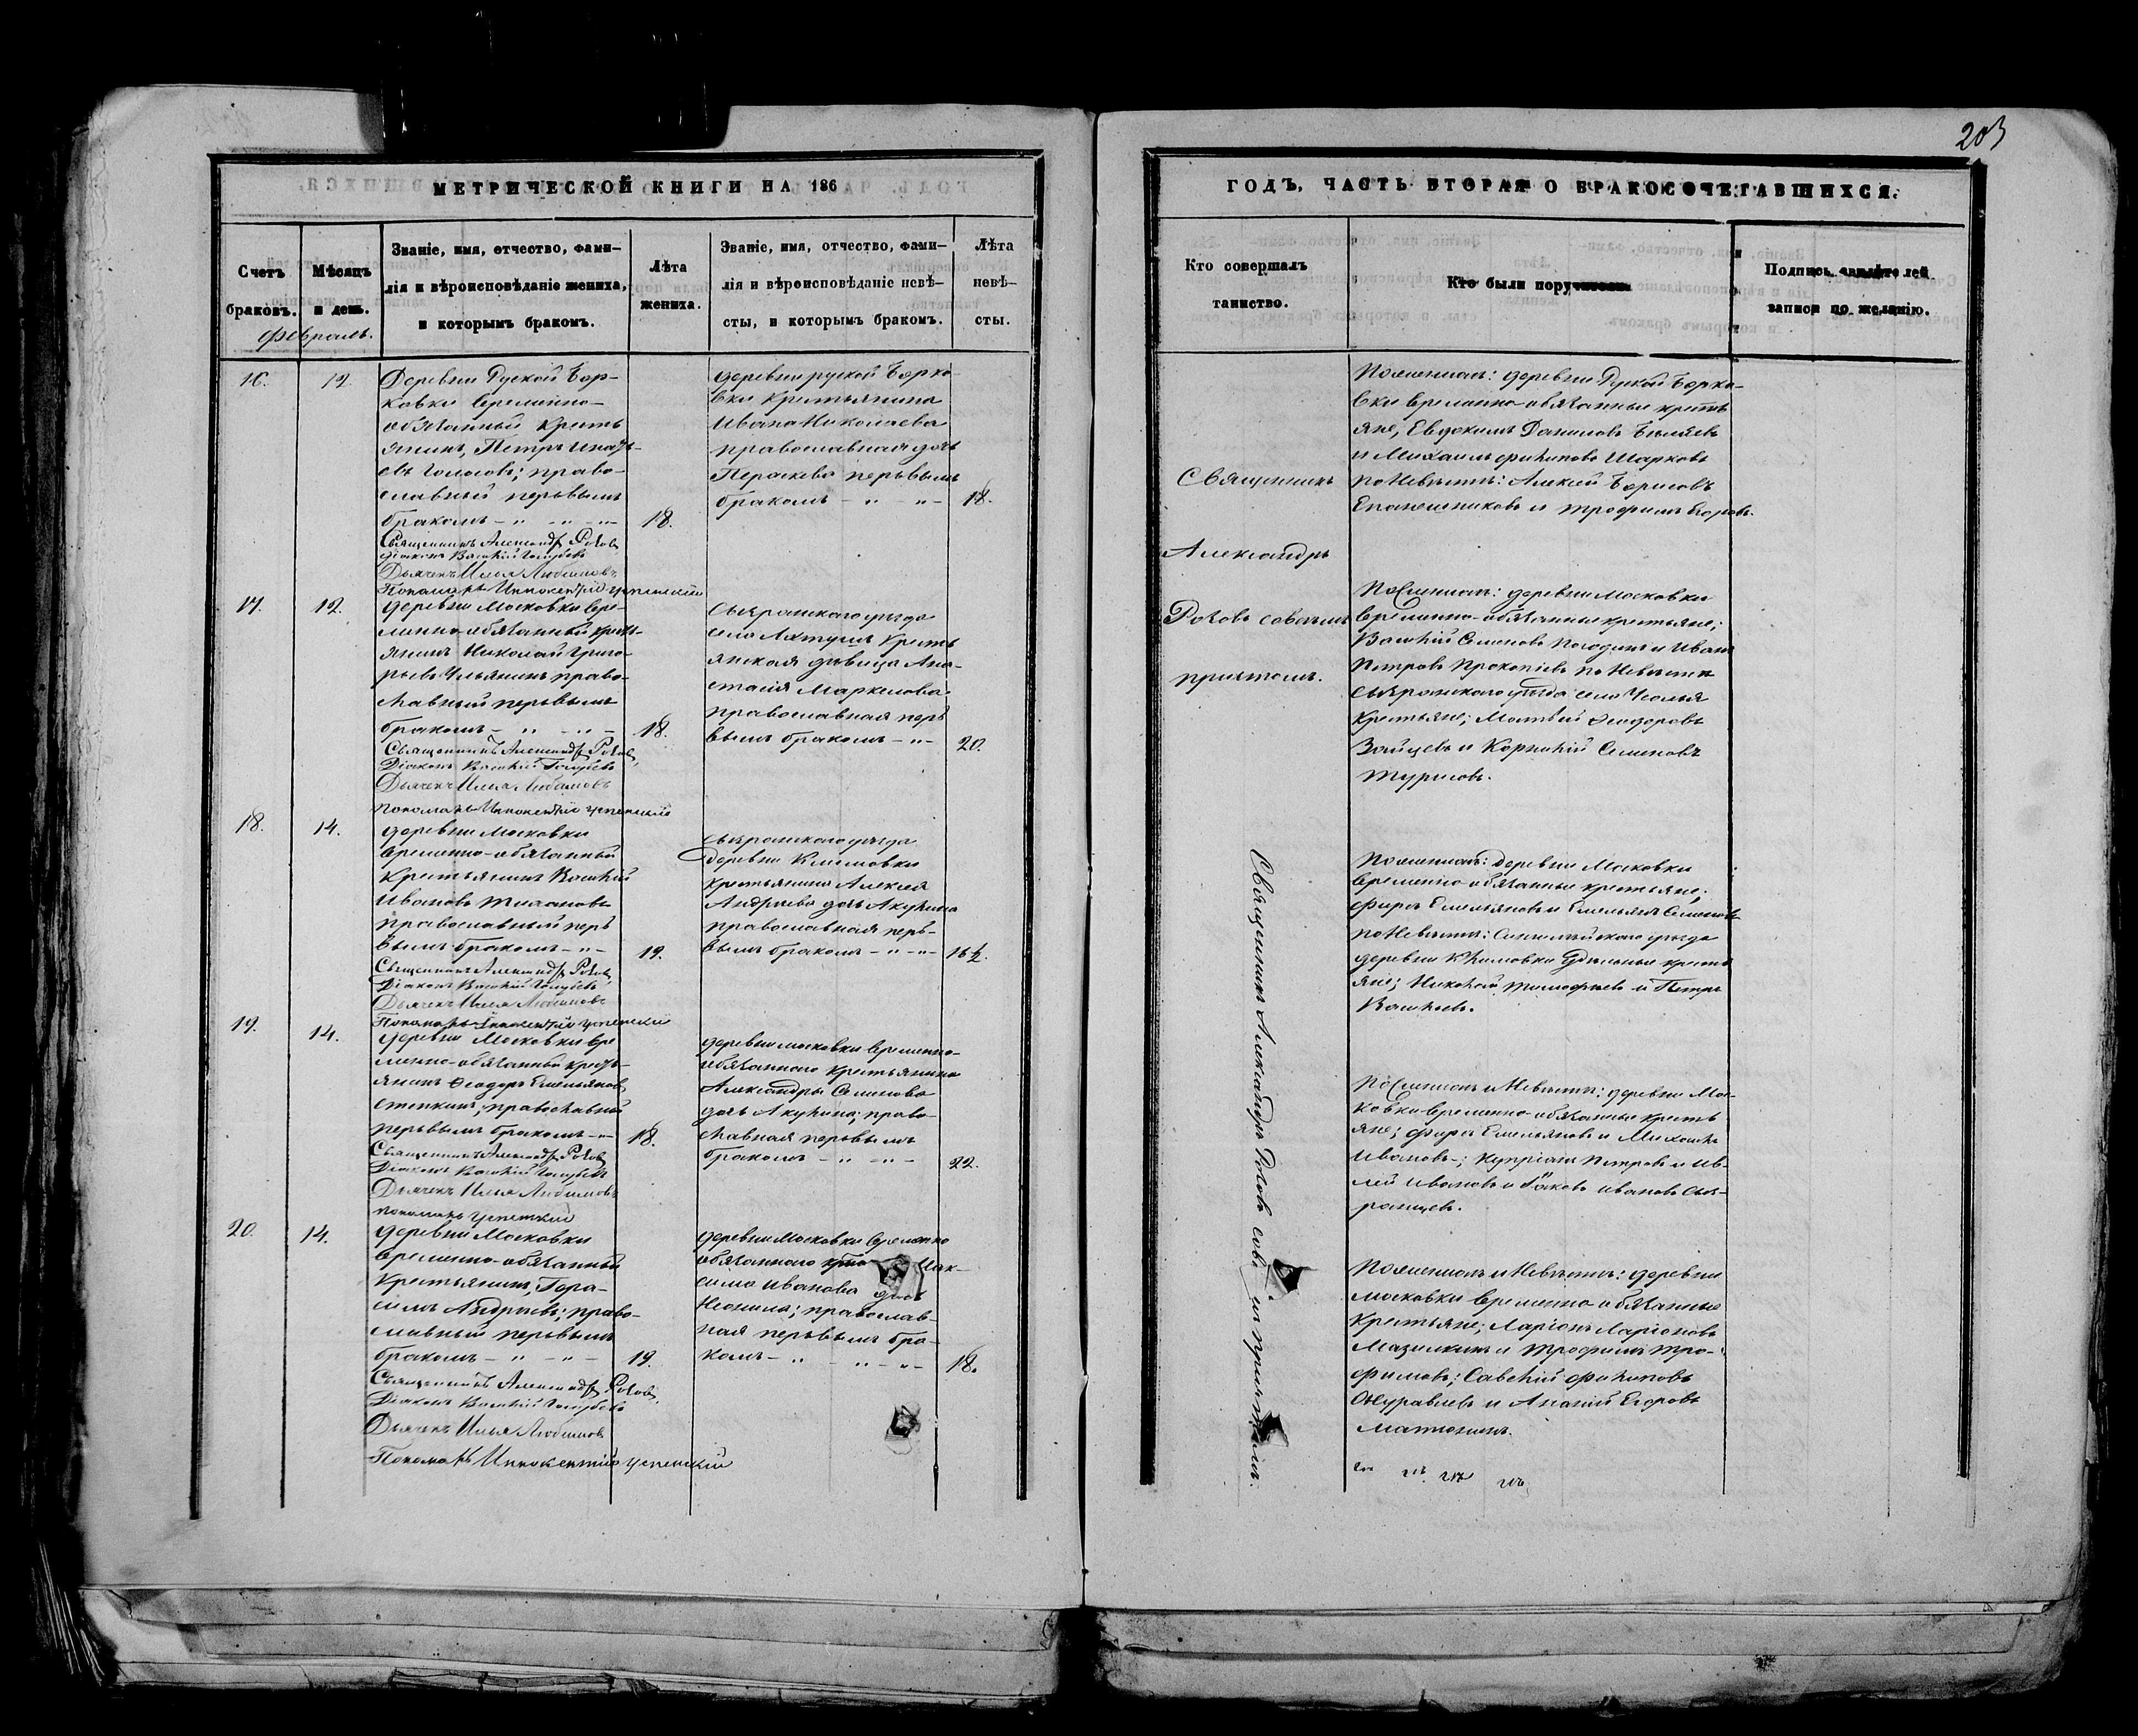 203
МЕТРИЧЕСКОЙ КНИГИ НА 186
ГОДЪ, ЧАСТЬ ВТОРАЯ О БРАКОСОЧЕТАВШИХСЯ.
Счетъ
браковъ.
Мѣсяцъ
и день.
Званіе, имя, отчество, фами-
лія и вѣроисповѣданіе жениха,
и которымъ бракомъ.
Лѣта
жениха.
Званіе, имя, отчество, фами-
лія и вѣроисповѣданіе невѣ-
сты, и которымъ бракомъ.
Лѣта
невѣ-
сты.
Кто совершалъ
таинство.
Кто были поручители.
Подпись свидѣтелей
записи по желанію.
Февраль.
16.
12.
Деревни Руской Бор-
ковки временно-
обязанный кресть
янинъ, Петръ Игнать-
евъ Голосовъ; право-
славный первымъ
бракомъ - " - " -
18.
Священникъ Александръ Роховъ
Діаконъ Василій Голубевъ
Дьячекъ Илья Любимовъ
Пономарь Иннокентій Успенскій
деревни руской Борко-
вки крестьянина
Ивана Николаева
православная дочь
Пераскева первымъ
бракомъ - " - " -
18.
По женихѣ: деревни Руской Борко-
вки временно-обязанные кресть
яне, Евдокимъ Даниловъ Бѣляевъ
и Михаилъ Филиповъ Шарковъ
по невѣстѣ: Алексѣй Борисовъ
и Трофимъ Егоровъ.
17.
12.
деревни Московки вре-
менно-обязанный кресть-
янинъ Николай Григо-
рьевъ Ульянинъ право-
славный первымъ
бракомъ - " - " -
18.
Священникъ Александръ Роховъ
Діаконъ Василій Голубевъ
Дьячекъ Илья Любимовъ
Пономарь Иннокентій Успенскій
Сызранскаго уѣзда
села Ахтуши кресть
янская дѣвица Ана-
стасія Маркелова
православная пер-
вымъ бракомъ - " -
20.
По женихѣ: деревни Московки
временно-обязанные крестьяне;
Василій Семеновъ Погодинъ и Иванъ
Петровъ Прокопіевъ по невѣстѣ
Сызранскаго уѣзда села Усолья
крестьяне; Матвѣй Феодоровъ
Зайцевъ и Корнилій Семеновъ
Турисовъ.
Священникъ
Александръ
Роховъ совмѣстно
причтомъ.
18.
14.
деревни Московки
временно-обязанный
крестьянинъ Василій
Ивановъ Тихановъ
православный пер
вымъ бракомъ - " -
19.
Священникъ Александръ Роховъ
Діаконъ Василій Голубевъ
Дьячекъ Илья Любимовъ
Пономарь Иннокентій Успенскій
Сызранскаго уѣзда
деревни Климовки
крестьянина Алексея
Андріева дочь Акулина
православная пер-
вымъ бракомъ - " - " -
16 ½.
По женихѣ: деревни Московки
временно-обязанные крестьяне;
Фирсъ Емельяновъ и Емельянъ Семеновъ
по невѣстѣ: уѣзда
деревни Климовки удѣльные кресть
яне; Николай Тимофѣевъ и Петръ
Васильевъ.
19.
14.
деревни Московки вре
менно-обязанный кресть-
янинъ Феодоръ Емельяновъ
Степкинъ; православный
первымъ бракомъ - " -
18.
Священникъ Александръ Роховъ
Діаконъ Василій Голубевъ
Дьячекъ Илья Любимовъ
Пономарь Успенскій
деревни Московки временно-
обязаннаго крестьянина
Александры Семенова
дочь Акулина; право-
славная первымъ
бракомъ - " - " -
22.
По женихѣ и невѣстѣ: деревни Мос-
ковки временно-обязанные кресть
яне; Фирсъ Емельяновъ и Михаилъ
Ивановъ; Купріянъ Петровъ и
Ивановъ и Яковъ Ивановъ Сыз-
ранцевъ.
20.
14.
деревни Московки
временно-обязанный
крестьянинъ, Гера-
симъ Андріевъ; право-
славный первымъ
бракомъ - " - " -
19.
Священникъ Александръ Роховъ
Діаконъ Василій Голубевъ
Дьячекъ Илья Любимовъ
Пономарь Иннокентій Успенскій
деревни Московки временно
обязаннаго Мак-
сима Иванова дочь
Неонила; православ-
ная первымъ бра-
комъ - " - " -
18.
По женихѣ и невѣстѣ: деревни
Московки временно-обязанные
крестьяне; Ларіонъ Ларіоновъ
Мазилкинъ и Трофимъ Тро-
фимовъ; Савелій Филиповъ
Журавлевъ и Ананій Егоровъ
Матюнинъ.
Священникъ Александръ Роховъ причтомъ.